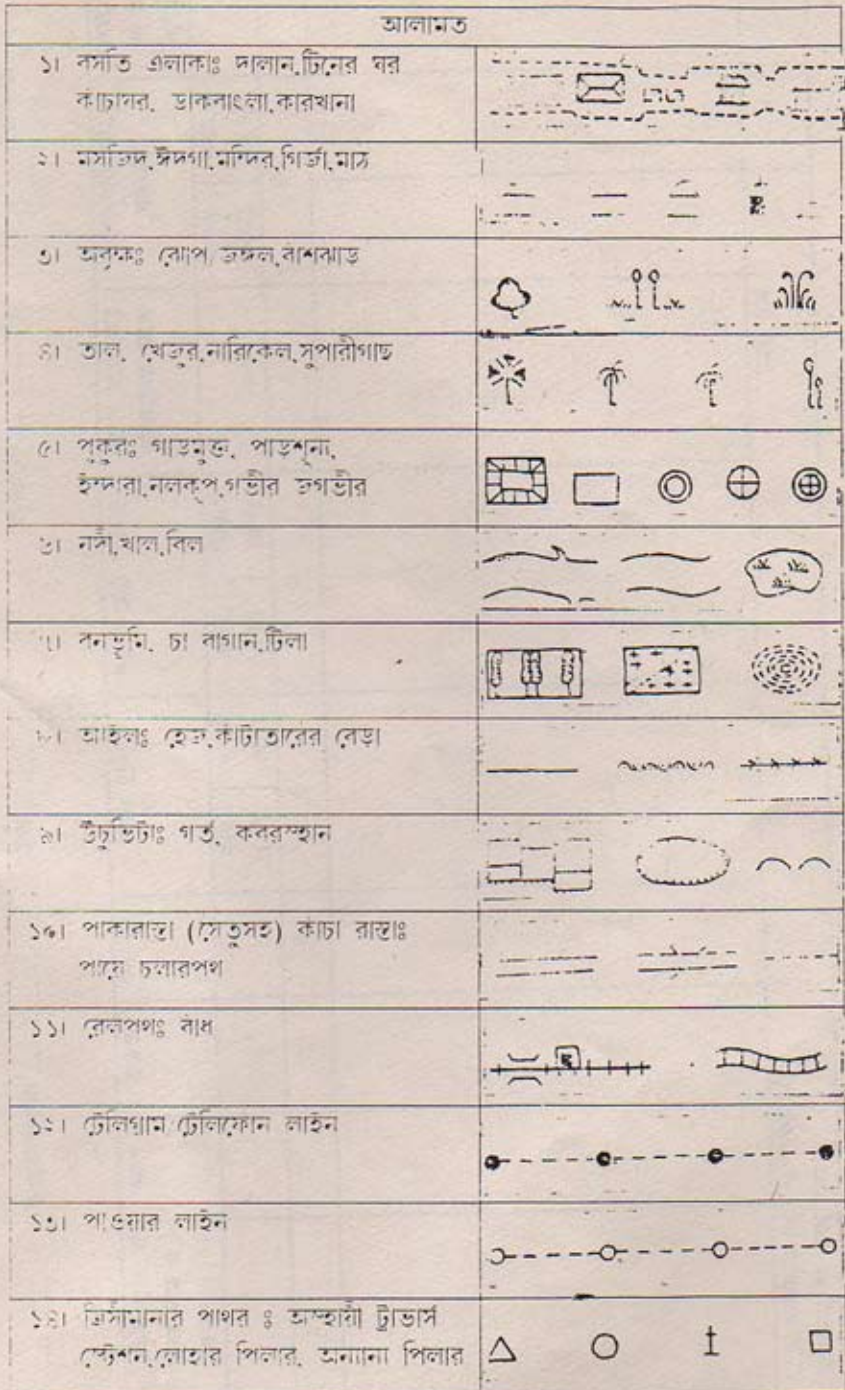 আলামত
১। বসতি এলাকাঃ দালান,টিনের ঘর
কাঁচাঘর, ডাকবাংলা,কারখানা
২। মসজিদ,ঈদগা,মন্দির,গির্জা,মাঠ
৩। অবৃক্ষঃ ঝোপ/জঙ্গল,বাঁশঝাড়
৪। তাল, খেজুর,নারিকেল,সুপারীগাছ
৫। পুকুরঃ পাড়মুক্ত, পাড়শূন্য,
ইন্দারা,নলকূপ,গভীর অগভীর
৬। নদী,খাল,বিল
৭। বনভূমি, চা বাগান,টিলা
৮। আইলঃ হেজ,কাঁটাতারের বেড়া
৯। উঁচুভিটাঃ গর্ত, কবরস্হান
১০। পাকারাস্তা (সেতুসহ) কাঁচা রাস্তাঃ
পায়ে চলারপথ
১১। রেলপথঃ বাঁধ
১২। টেলিগ্রাম টেলিফোন লাইন
১৩। পাওয়ার লাইন
১৪। ত্রিসীমানার পাথর ঃ অস্হায়ী ট্রাভার্স
ষ্টেশন,লোহার পিলার, অন্যান্য পিলার